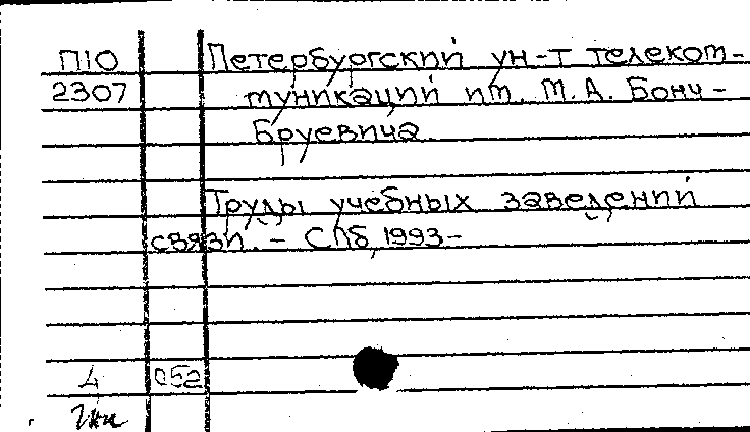 П10 Петербургский ун-т телеком-
2307 муникаций им. М.А. Бонч-
Бруевича.
Труды учебных заведений
связи. - СПб, 1993-
4 052